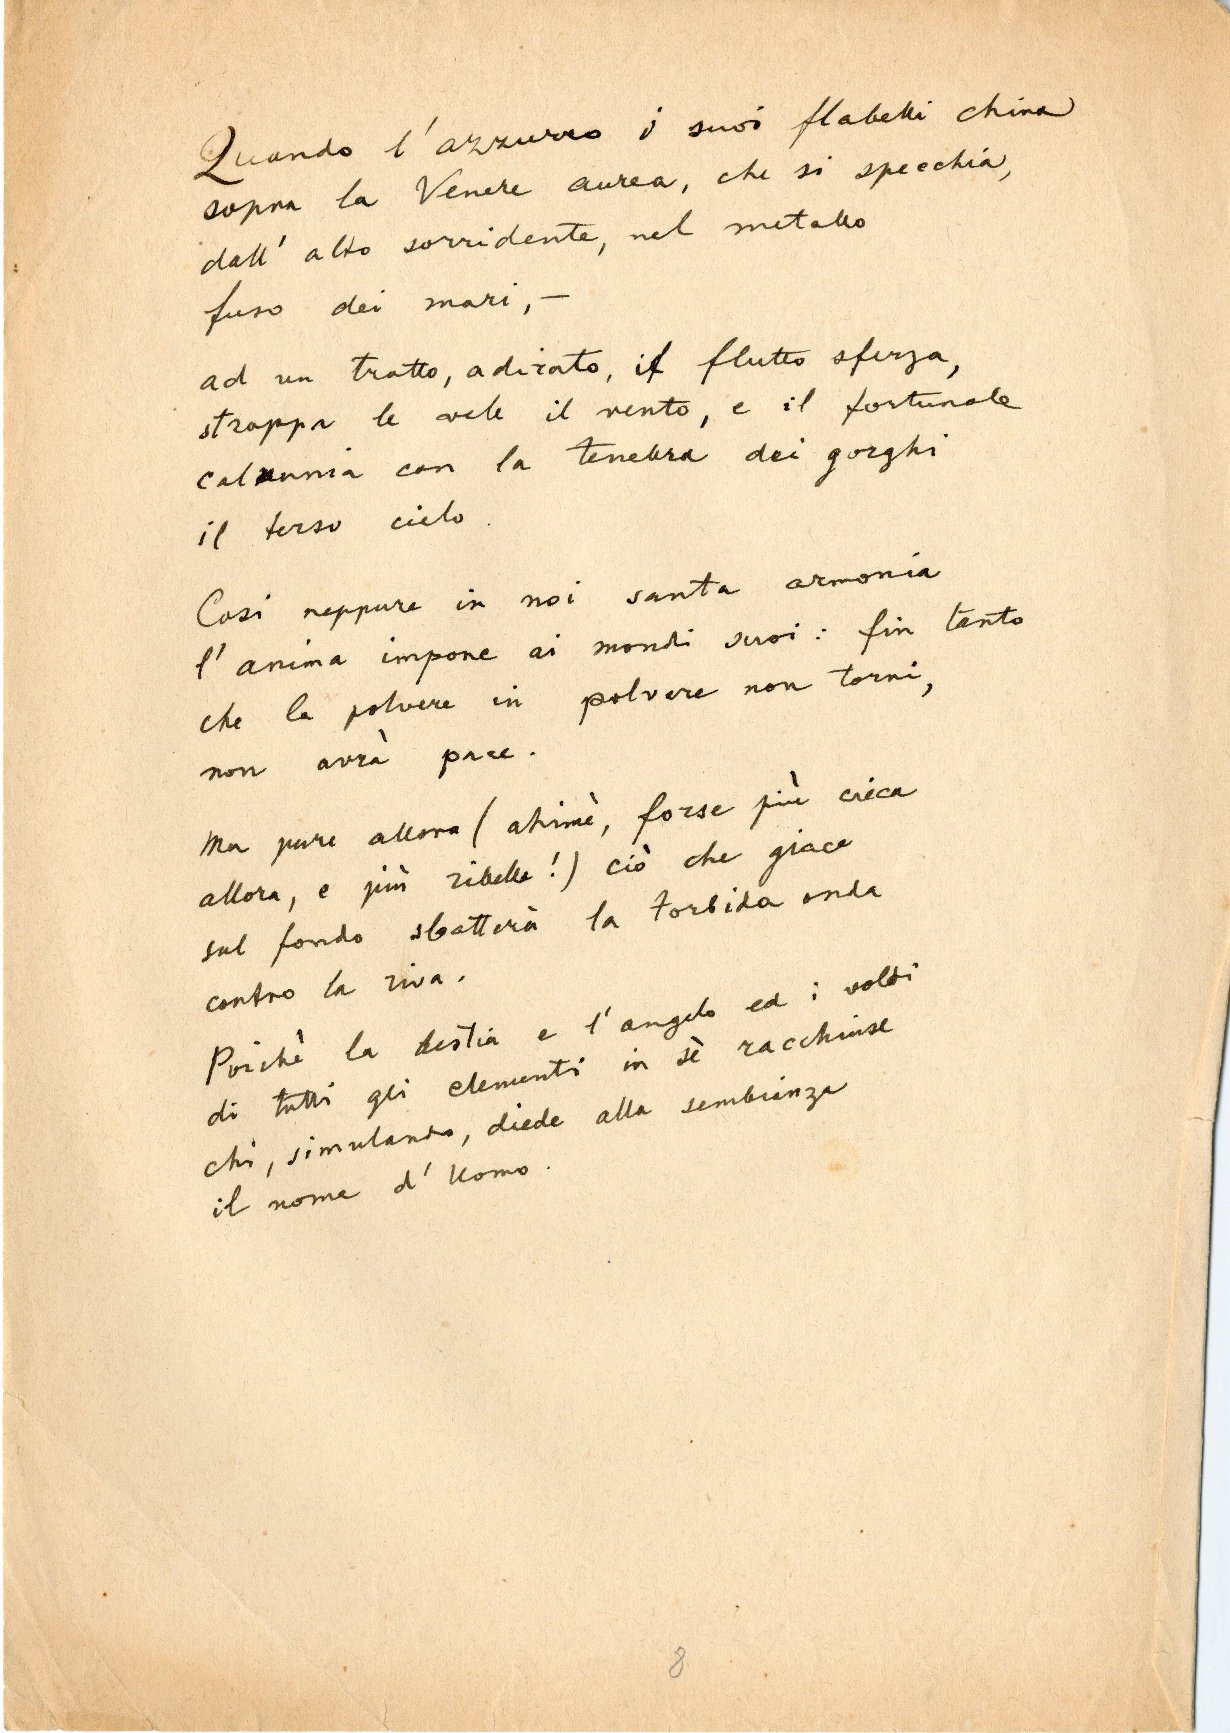 Quando l'azzurro i suoi flabelli china
sopra la Venere aurea, che si specchia,
dall'alto sorridente, nel metallo
fuso dei mari, —
ad un tratto, adirato, il flutto sferza,
strappa le vele il vento, e il fortunale
calunnia con la tenebra dei gorghi
il terso cielo.
Così neppure in noi santa armonia
l'anima impone ai mondi suoi: fin tanto
che la polvere in polvere non torni,
non avrà pace.
Ma pure allora (ahimè, forse più cieca
allora, e più ribelle!) ciò che giace
sul fondo sbatterà la torbida onda
contro la riva.
Poichè la bestia e l'angelo ed i volti
di tutti gli elementi in sè racchiuse
chi, simulando, diede alla sembianza
il nome d'Uomo.
8